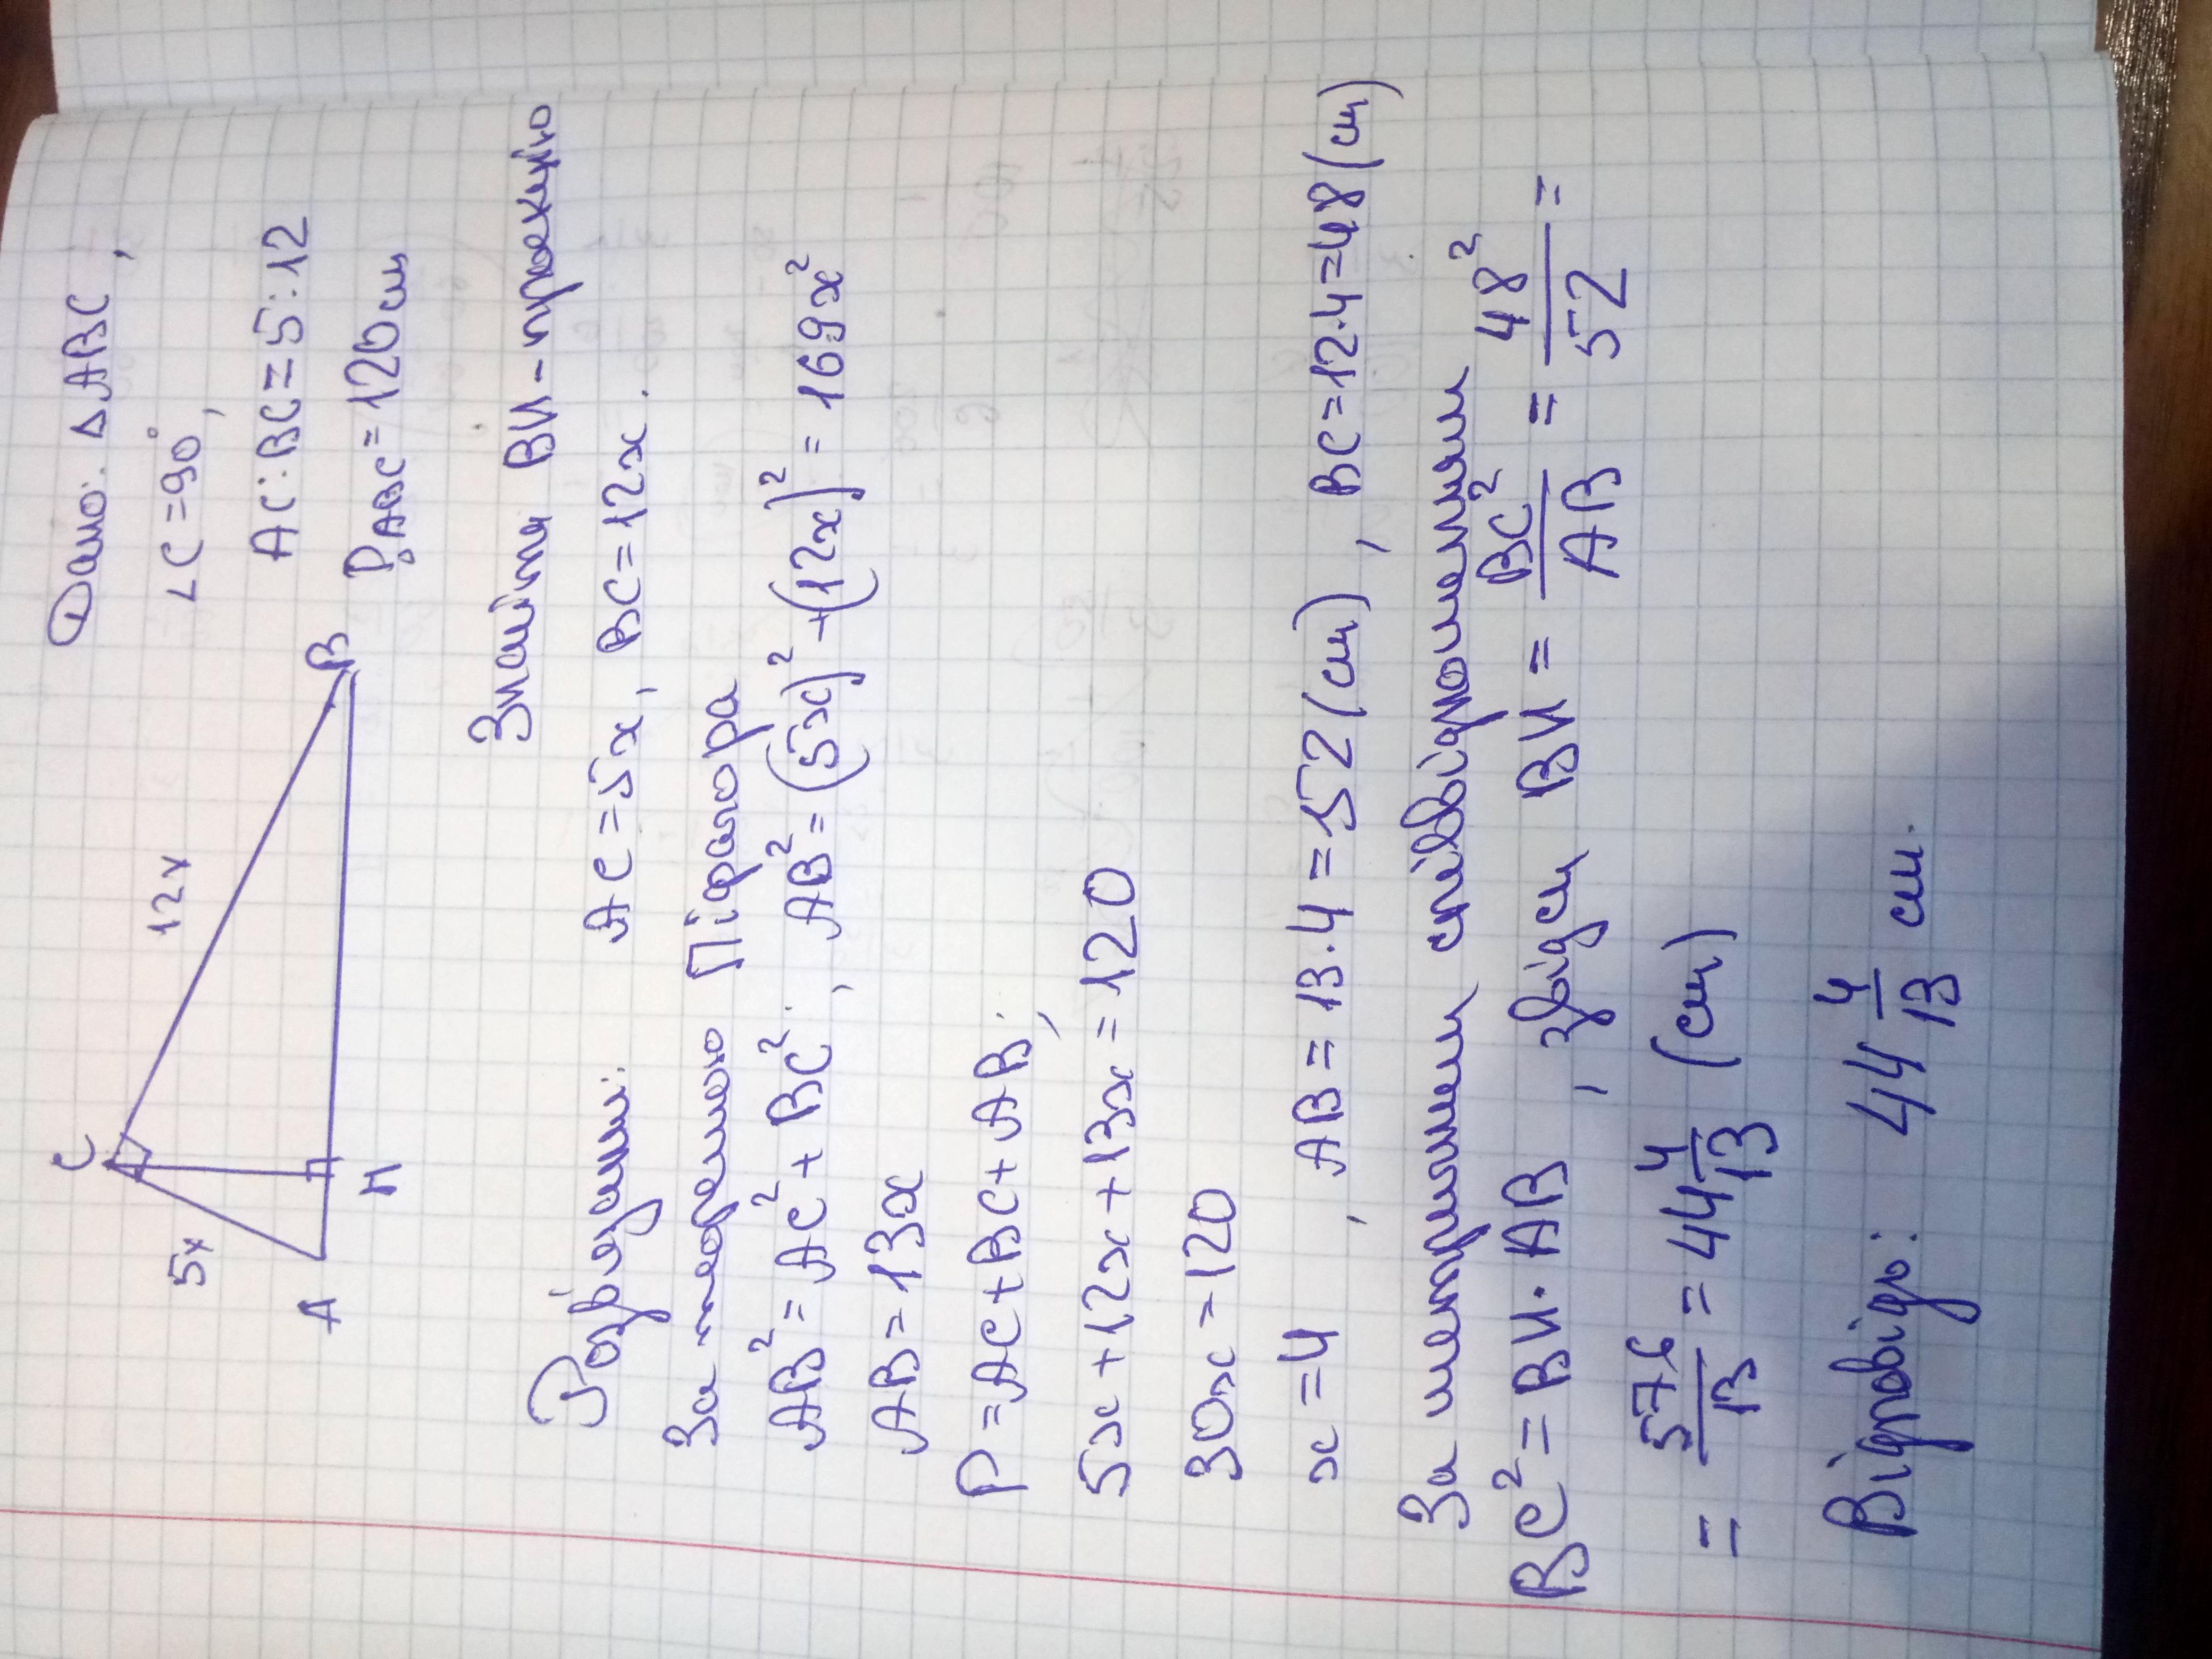 Дано: ΔABC,
∠C=90°,
AC:BC=5:12
P△ABC=120см
C
12x
5x
A
H
B
Знайти BH-проекцію
Розв'язання:
AC=5x, BC=12x.
За теоремою Піфагора
AB²=AC²+BC²; AB²=(5x)²+(12x)²=169x²
AB=13x
P=AC+BC+AB;
5x+12x+13x=120
30x=120
x=4, AB=13·4=52(см), BC=12·4=48(см)
За метричними співвідношеннями
BC²=BH·AB, звідси BH=BC²/AB=48²/52=
=576/13=44 4/13 (см)
Відповідь: 44 4/13 см.